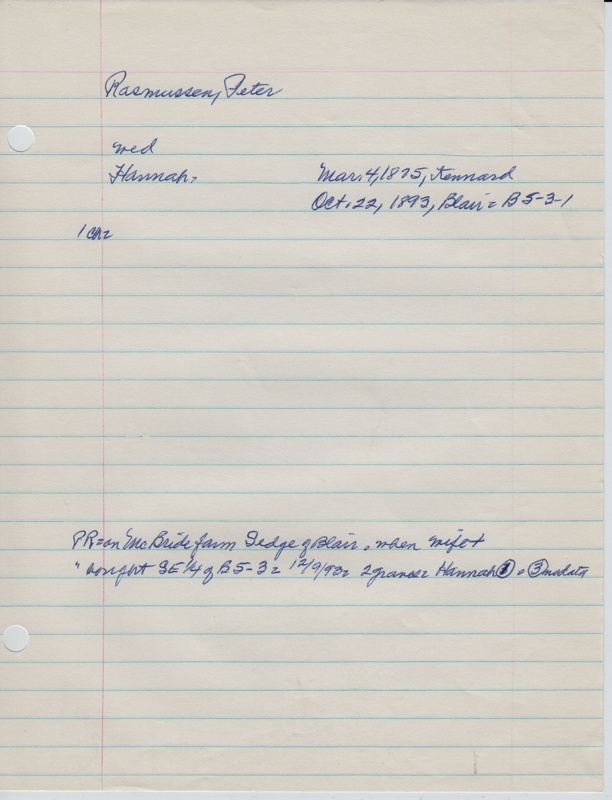 Rasmussen, Peter
wed
Hannah = Mar. 4, 1875, Kennard
Oct. 22, 1893, Blair = B5-3-1
1 ch=
PR= on McBride farm S edge of Blair, when wife +
" bought SE 1/4 of B5-3 = 12/9/93 = 2 graves = Hannah ① + ③ no data